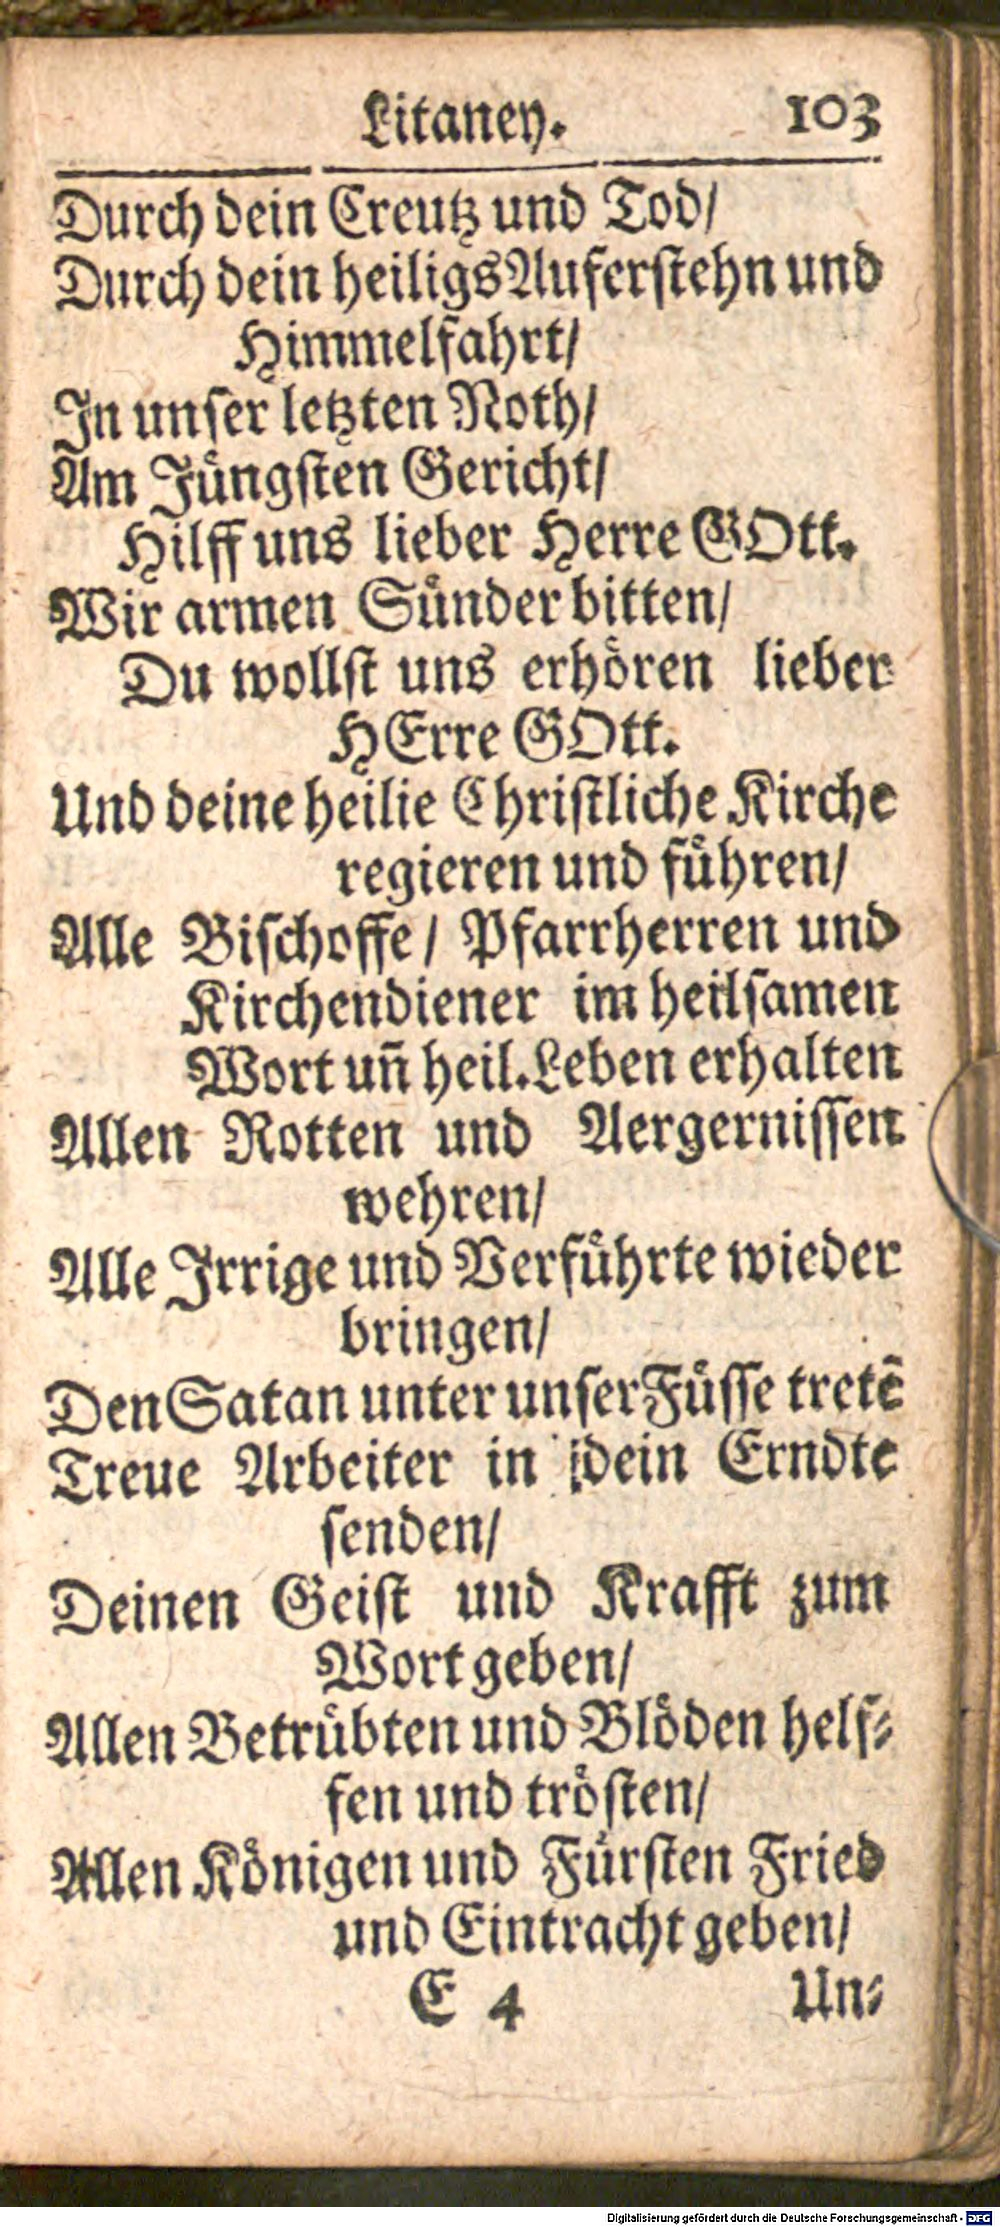 Litaney. 103
Durch dein Creutz und Tod/
Durch dein heiligs Auferstehn und
Himmelfahrt/
In unser letzten Noth/
Am Jüngsten Gericht/
Hilff uns lieber Herre GOtt.
Wir armen Sünder bitten/
Du wollst uns erhören lieber
HErre GOtt.
Und deine heilie Christliche Kirche
regieren und führen/
Alle Bischoffe/ Pfarrherren und
Kirchendiener im heilsamen
Wort uñ heil. Leben erhalten
Allen Rotten und Aergernissen
wehren/
Alle Irrige und Verführte wieder
bringen/
Den Satan unter unser Füsse tretẽ
Treue Arbeiter in dein Erndte
senden/
Deinen Geist und Krafft zum
Wort geben/
Allen Betrübten und Blöden helf-
fen und trösten/
Allen Königen und Fürsten Fried
und Eintracht geben/
E 4 Un-
Digitalisierung gefördert durch die Deutsche Forschungsgemeinschaft - DFG